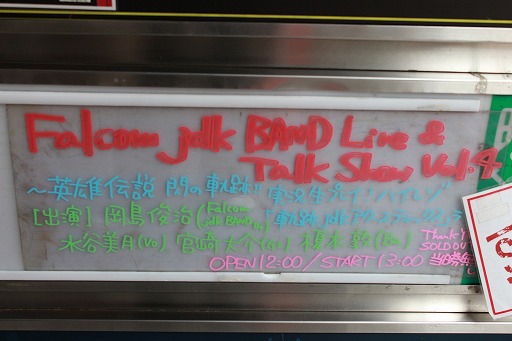 Falcom jdk BAND Live &
Talk Show Vol.4
～英雄伝説 閃の軌跡"実況生プレイ!
[出演] 岡島俊治(Falcom jdk BAND
水谷美月(Vo) 宮崎大介(Gt) 榎本敦(Ba)
Thank you SOLD OUT
OPEN 12:00 / START 13:00 当日券